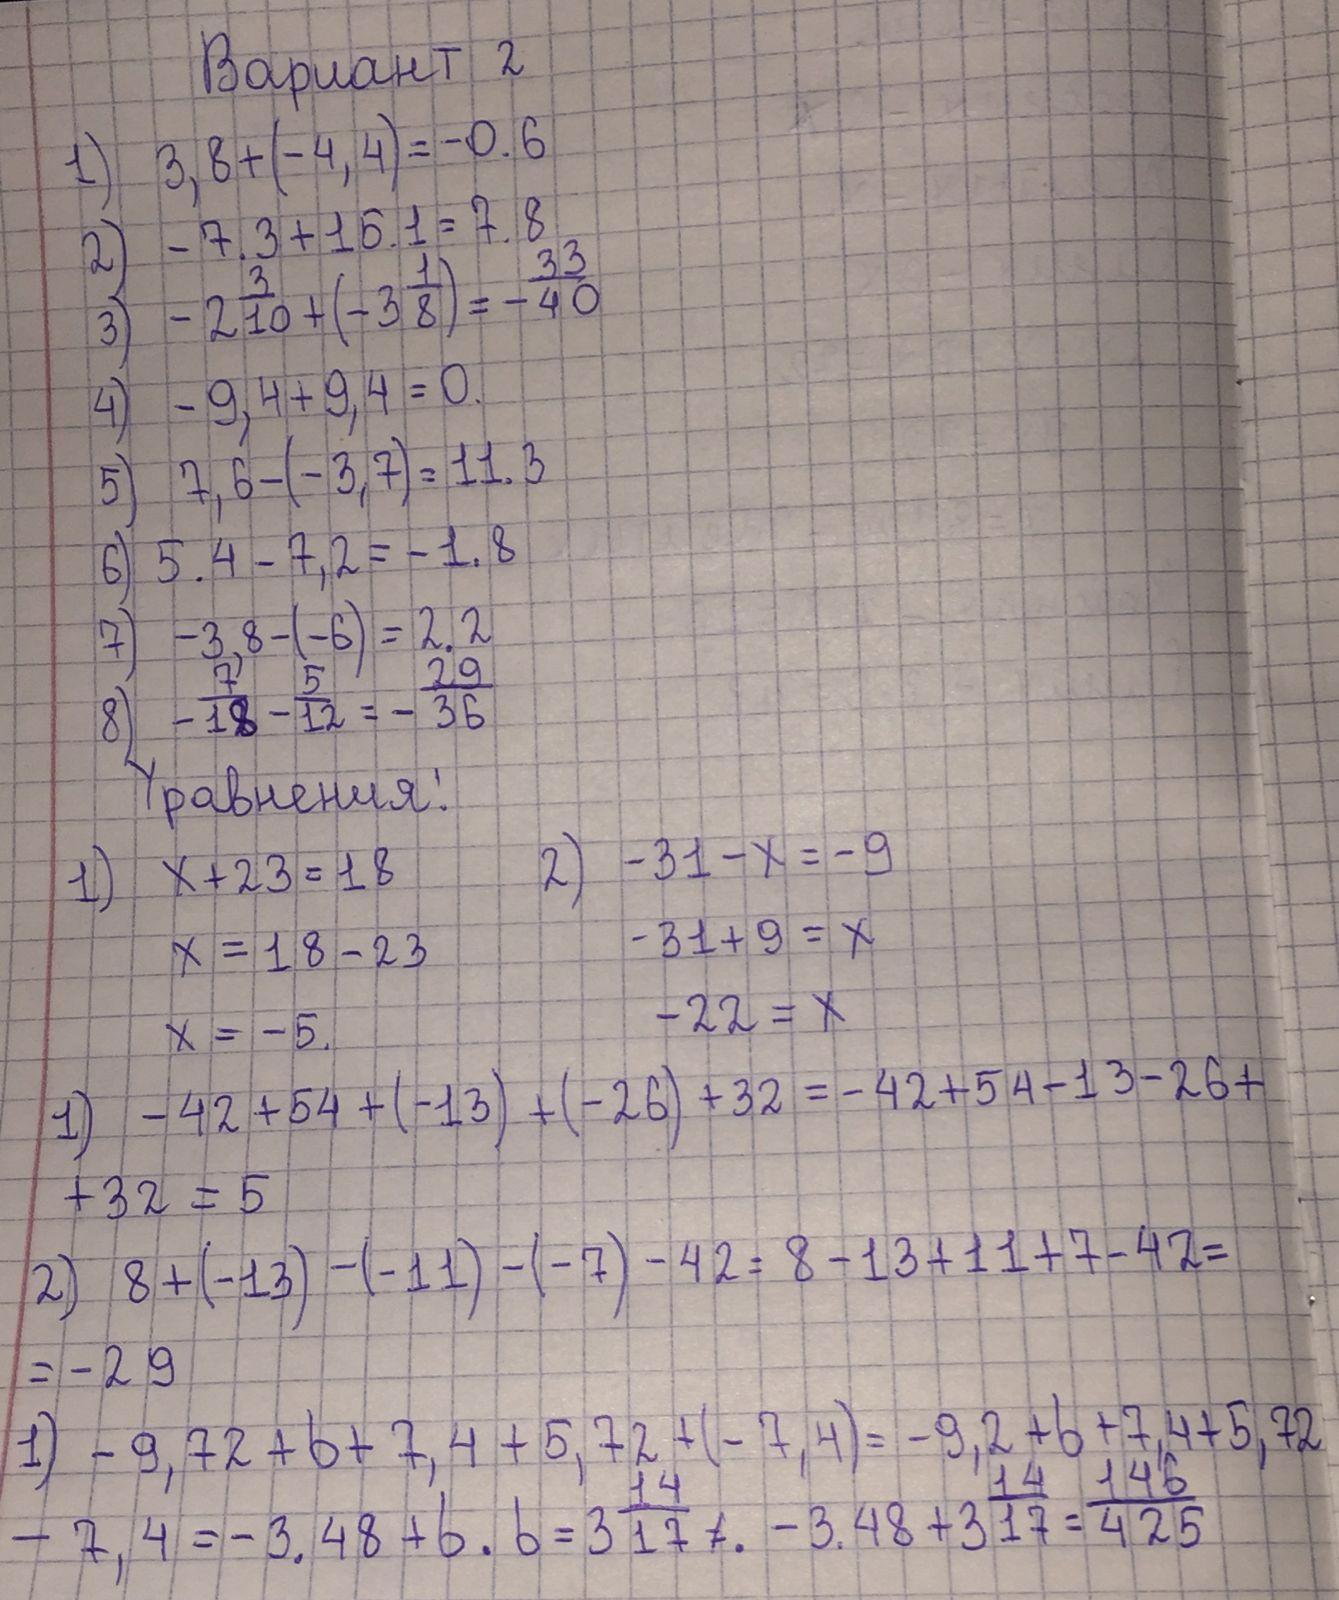 Вариант 2
1) 3,8+(-4,4)=-0.6
2) -7.3+15.1=7.8
3) -2 3/10+(-3 1/8)=-33/40
4) -9,4+9,4=0.
5) 7,6-(-3,7)=11.3
6) 5.4-7,2=-1.8
7) -3,8-(-6)=2.2
8) -7/18-5/12=-29/36
Уравнения:
1) x+23=18 2) -31-x=-9
x=18-23 -31+9=x
x=-5. -22=x
1) -42+54+(-13)+(-26)+32=-42+54-13-26+
+32=5
2) 8+(-13)-(-11)-(-7)-42=8-13+11+7-42=
=-29
1) -9,72+b+7,4+5,72+(-7,4)=-9,2+b+7,4+5,72
-7,4=-3.48+b. b=3 14/17 . -3.48+3 14/17=146/425